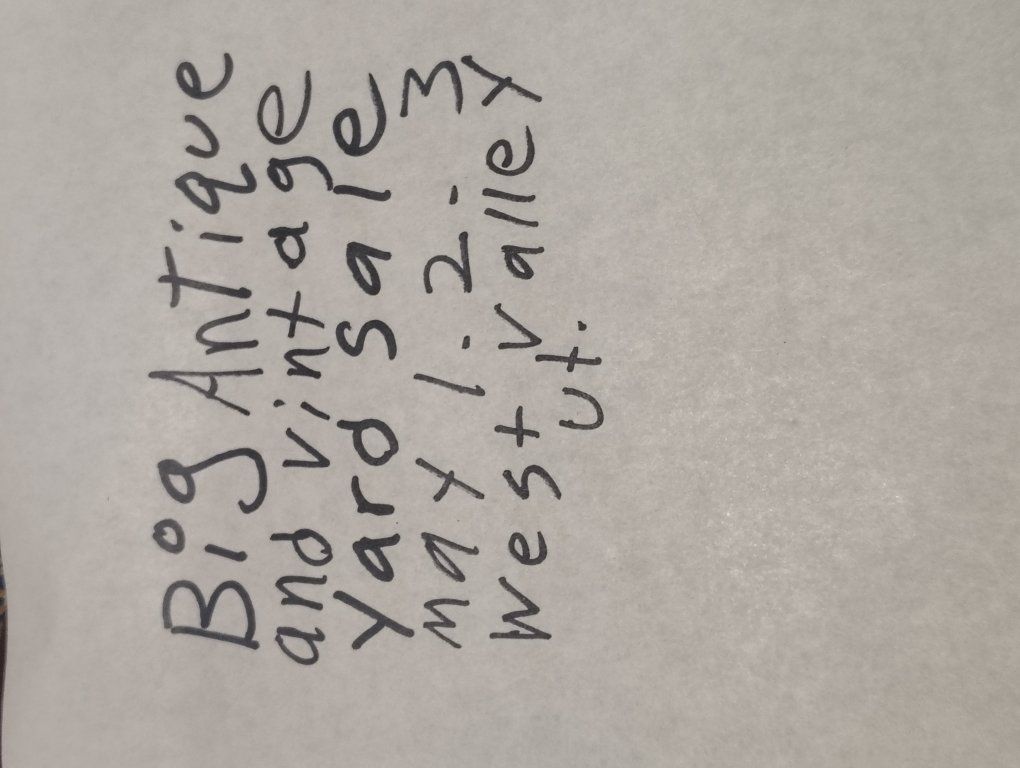 Big Antique
and vintage
yard sale
may 1.2.3
west valley
ut.